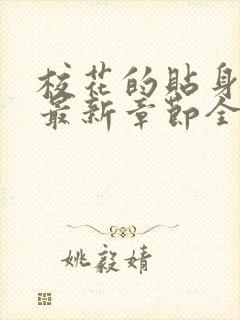 校花的貼身
最新章節全
姚毅婧